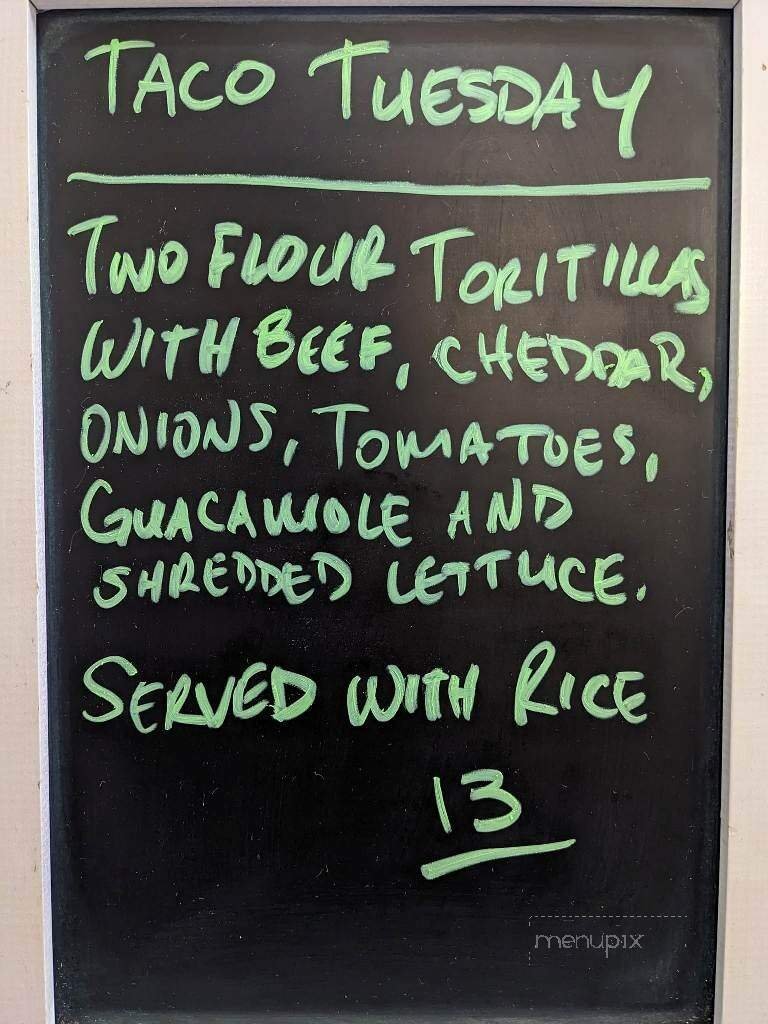 TACO TUESDAY
TWO FLOUR TORITILLAS
WITH BEEF, CHEDDAR,
ONIONS, TOMATOES,
GUACAMOLE AND
SHREDDED LETTUCE.
SERVED WITH RICE
13
menupix